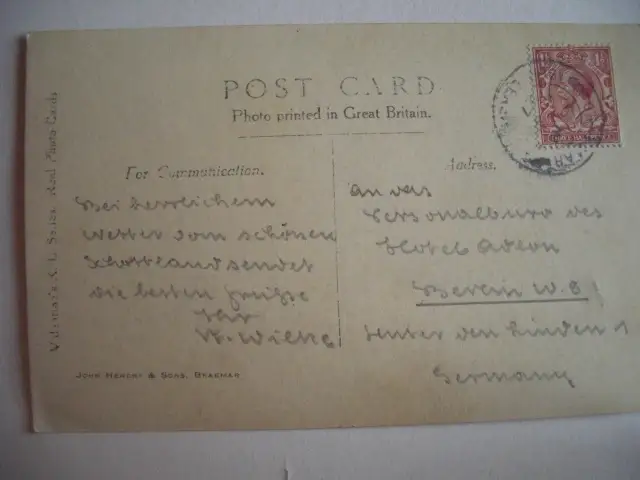 POST CARD
Photo printed in Great Britain.
For Communication.
Bei herrlichem
Wetter vom schönen
Schottland sendet
die besten Grüße
Ihr
W. Wilke
Address.
An das
Personalbüro des
Hotel Adlon
Berlin W. 8!
Unter den Linden 1
Germany
JOHN HENDRY & SONS, BRAEMAR
Real Photo Cards
THREE HALF PENCE